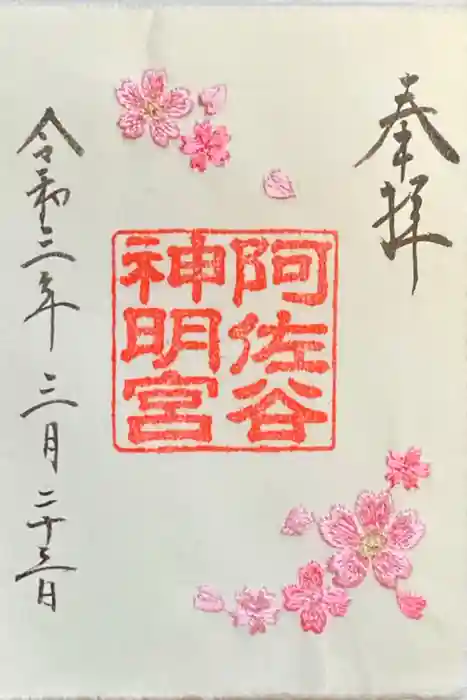 奉拝
阿佐谷
神明宮
令和二年三月二十三日